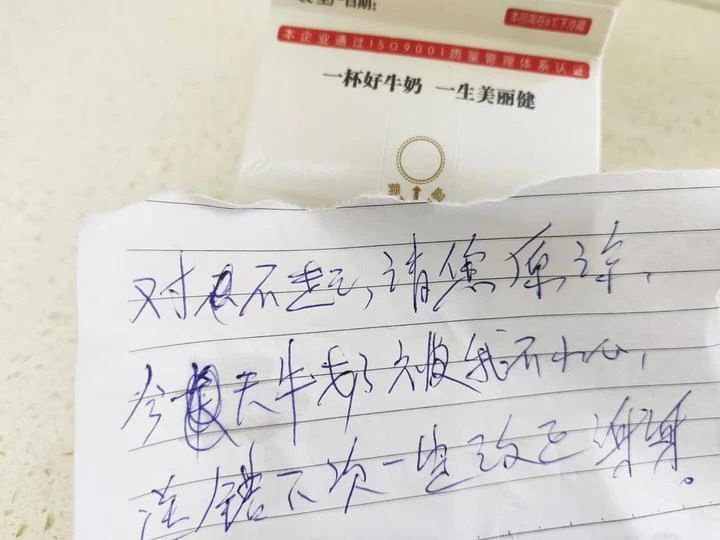 日期:
本企业通过ISO9001质量管理体系认证
一杯好牛奶 一生美丽健
对不起,请您原谅,
今天牛奶被我不小心,
送错下次一定改正谢谢。